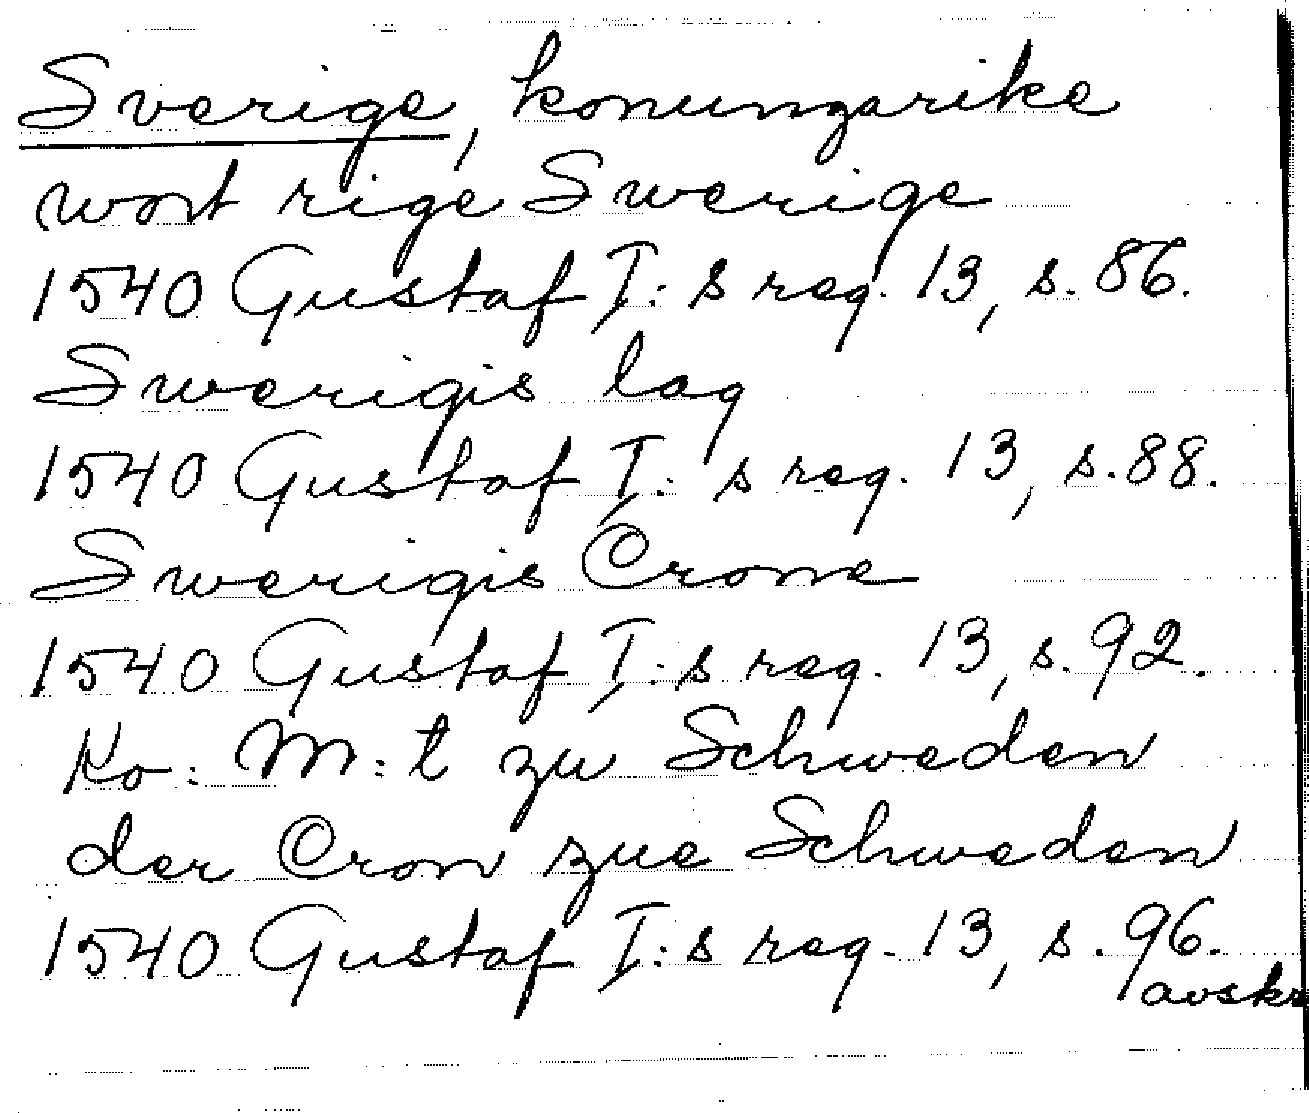 Sverige, konungarike
wort rige Swerige
1540 Gustaf I:s reg. 13, s. 86.
Swerigis lag
1540 Gustaf I:s reg. 13, s. 88.
Swerigis Crone
1540 Gustaf I:s reg. 13, s. 92.
Ko: M:t zu Schweden
der Cron zue Schweden
1540 Gustaf I:s reg. 13, s. 96.
avskr